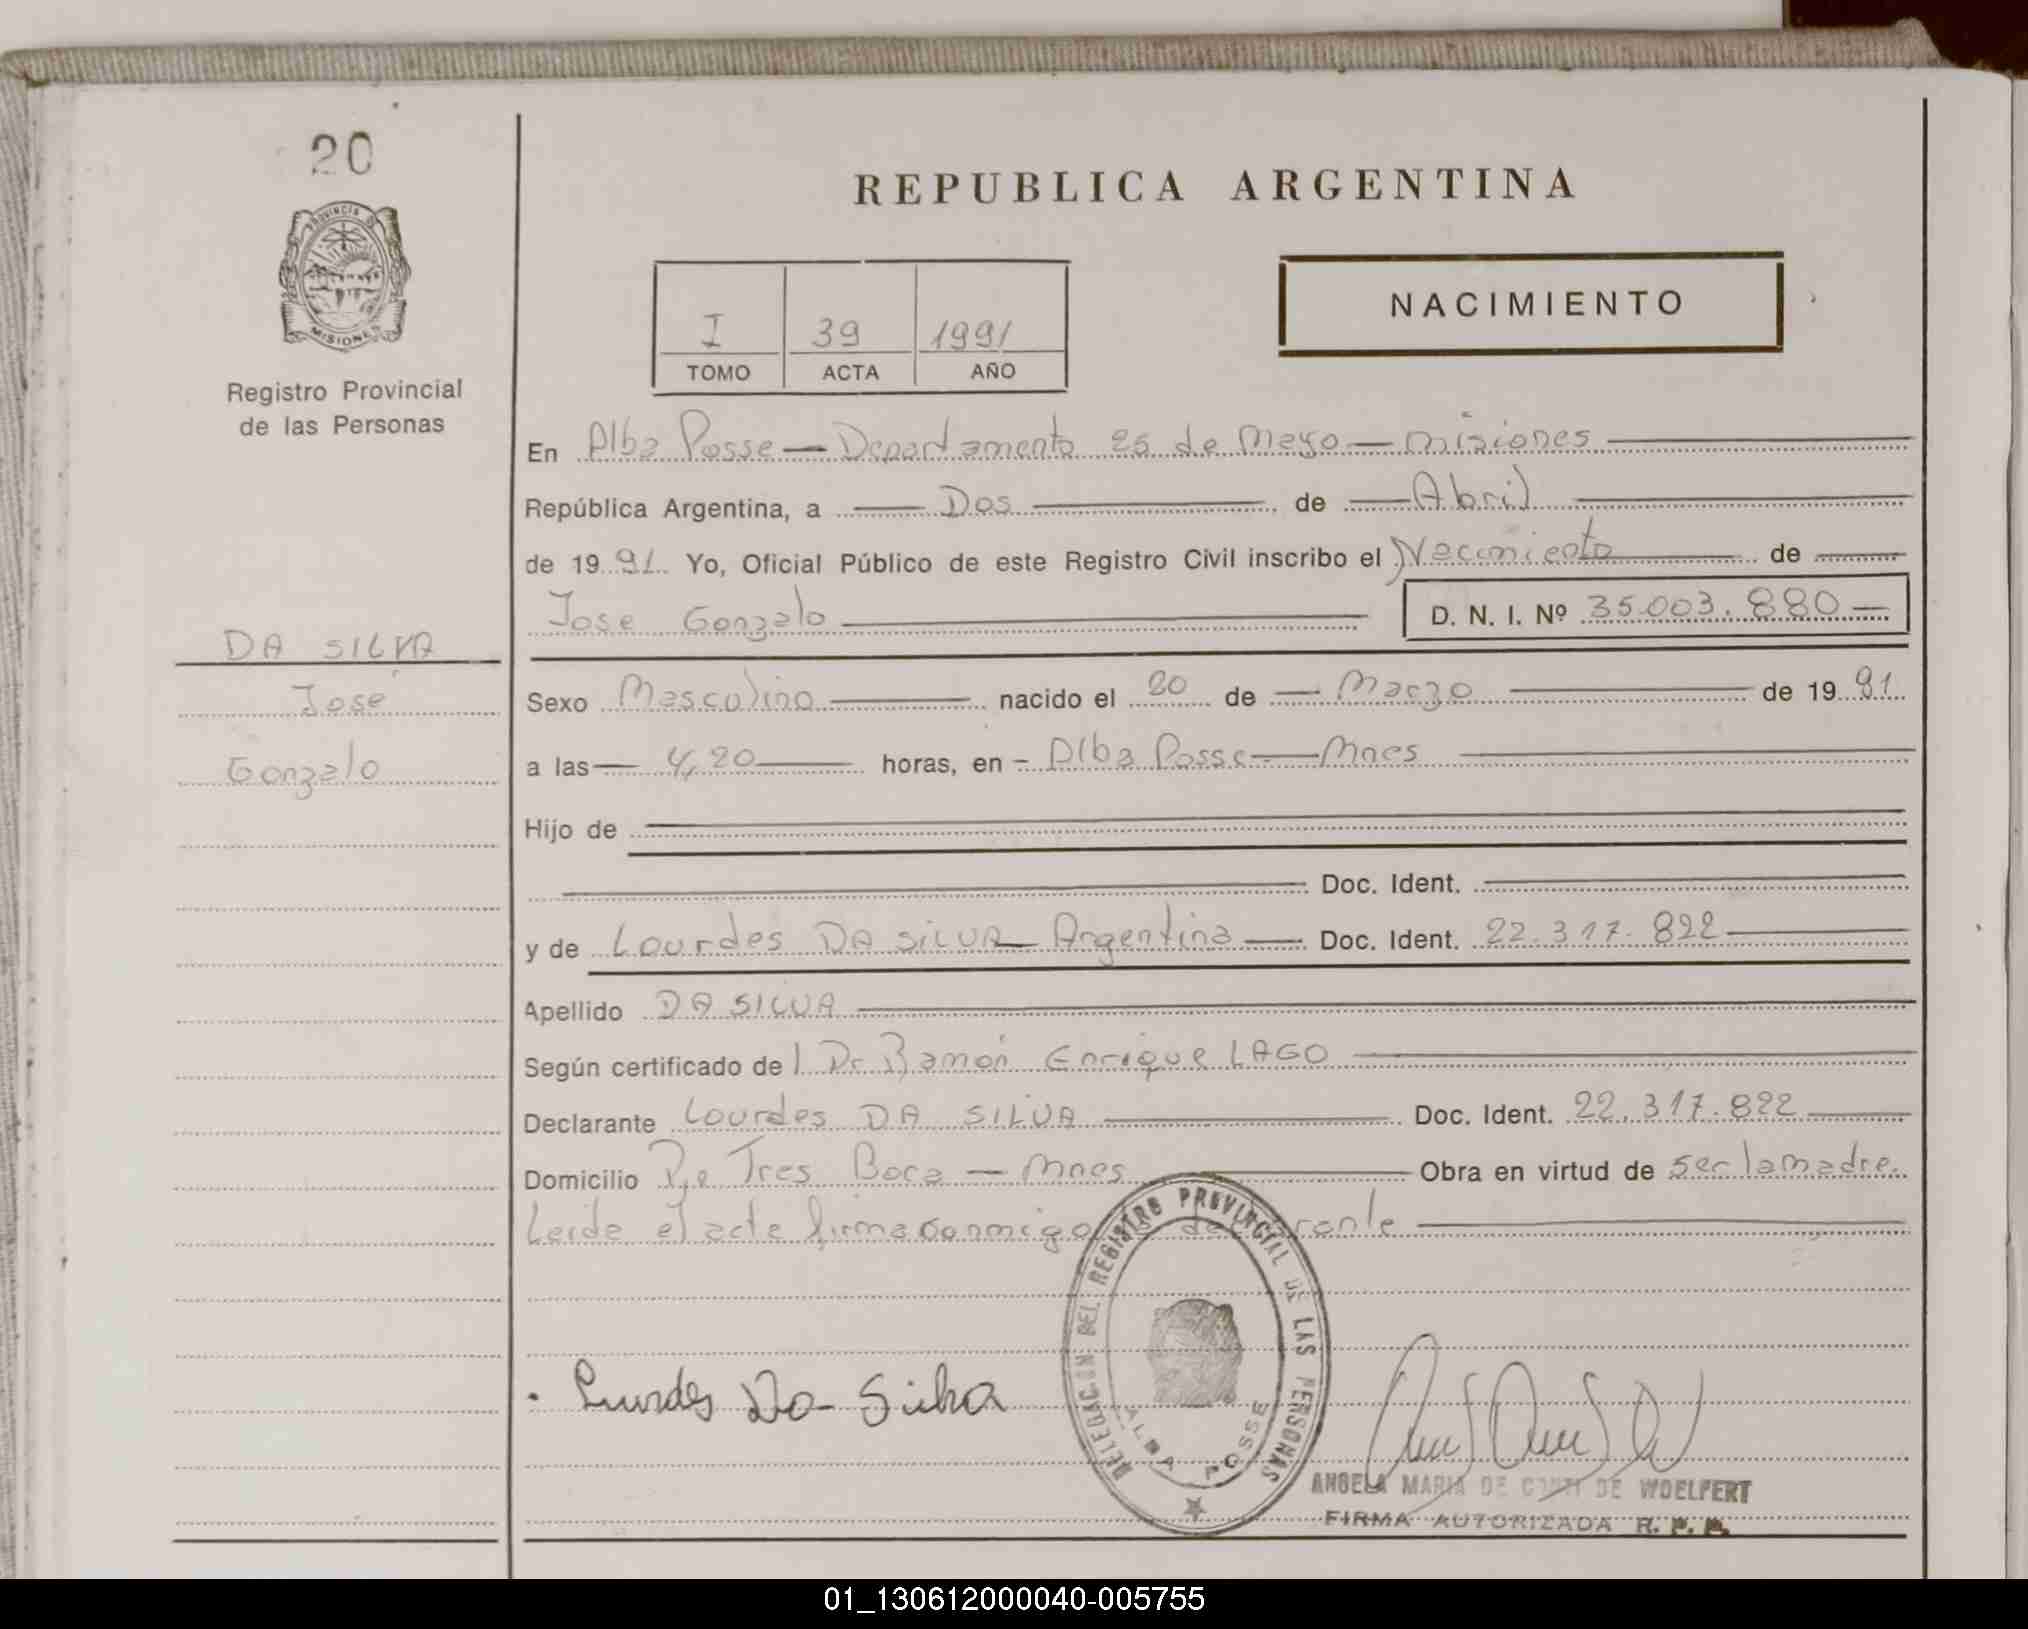 20
PROVINCIA DE
MISIONES
Registro Provincial
de las Personas
DA SILVA
José
Gonzalo
REPUBLICA ARGENTINA
I 39 1991
TOMO ACTA AÑO
NACIMIENTO
En Alba Posse — Departamento 25 de Mayo — Misiones
República Argentina, a — Dos — de — Abril
de 1991 Yo, Oficial Público de este Registro Civil inscribo el Nacimiento de
Jose Gonzalo — D. N. I. Nº 35.003.880 —
Sexo Masculino — nacido el 20 de — Marzo — de 1991
a las — 4,20 — horas, en - Alba Posse — Mnes
Hijo de
Doc. Ident.
y de Lourdes DA SILVA — Argentina — Doc. Ident. 22.317.822 —
Apellido DA SILVA —
Según certificado de l Dr Ramón Enrique LAGO —
Declarante Lourdes DA SILVA — Doc. Ident. 22.317.822 —
Domicilio Pje Tres Boca — Mnes — Obra en virtud de ser la madre.
Leida el acta firma conmigo la declarante —
DELEGACION DEL REGISTRO PROVINCIAL DE LAS PERSONAS
ALBA POSSE
Lurdes Da Silva
ANGELA MARIA DE CONTI DE WOELFERT
FIRMA AUTORIZADA R. P. P.
01_130612000040-005755